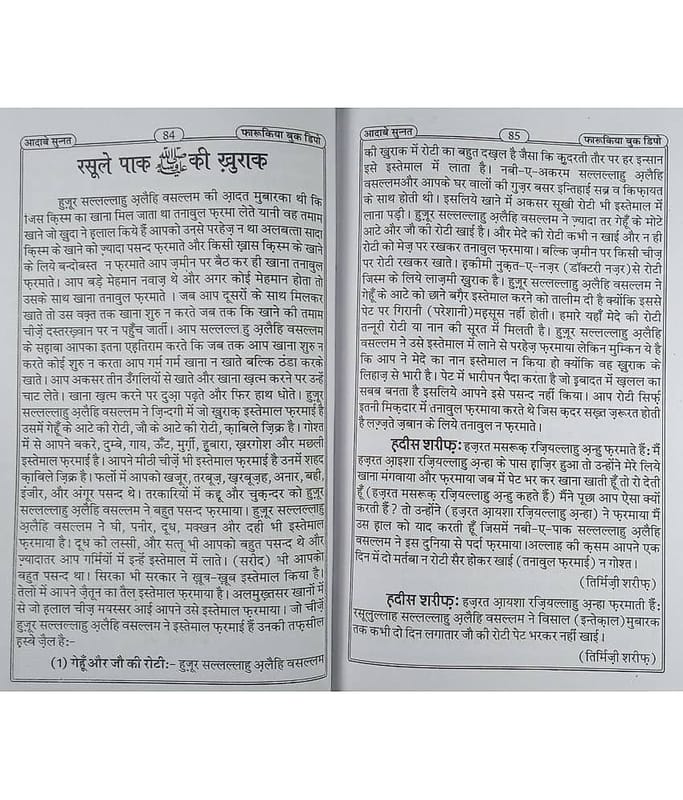 आदाबे सुन्नत 84 फ़ारूकिया बुक डिपो
रसूले पाक ﷺ की ख़ुराक
हुज़ूर सल्लल्लाहु अ़लैहि वसल्लम की आ़दत मुबारका थी कि
जिस क़िस्म का खाना मिल जाता था तनावुल फ़रमा लेते यानी वह तमाम
खाने जो ख़ुदा ने हलाल किये हैं आपको उनसे परहेज़ न था अलबत्ता सादा
क़िस्म के खाने को ज़्यादा पसन्द फ़रमाते और किसी ख़ास क़िस्म के खाने
के लिये बन्दोबस्त न फ़रमाते आप ज़मीन पर बैठ कर ही खाना तनावुल
फ़रमाते। आप बड़े मेहमान नवाज़ थे और अगर कोई मेहमान होता तो
उसके साथ खाना तनावुल फ़रमाते । जब आप दूसरों के साथ मिलकर
खाते तो उस वक़्त तक खाना शुरु न करते जब तक कि खाने की तमाम
चीज़ें दस्तरख़्वान पर न पहुँच जातीं। आप सल्लल्ल हु अ़लैहि वसल्लम
के सहाबा आपका इतना एहतिराम करते कि जब तक आप खाना शुरु न
करते कोई शुरु न करता आप गर्म गर्म खाना न खाते बल्कि ठंडा करके
खाते। आप अकसर तीन उँगलियों से खाते और खाना ख़त्म करने पर उन्हें
चाट लेते। खाना ख़त्म करने पर दुआ़ पढ़ते और फिर हाथ धोते। हुज़ूर
सल्लल्लाहु अ़लैहि वसल्लम ने ज़िन्दगी में जो ख़ुराक़ इस्तेमाल फ़रमाई है
उसमें गेहूँ के आटे की रोटी, जौ के आटे की रोटी, क़ाबिले ज़िक्र है। गोश्त
में से आपने बकरे, दुम्बे, गाय, ऊँट, मुर्ग़ी, हुबारा, ख़रगोश और मछली
इस्तेमाल फ़रमाई है। आपने मीठी चीज़ें भी इस्तेमाल फ़रमाई है उनमें शहद
क़ाबिले ज़िक्र है। फलों में आपको खजूर, तरबूज़, ख़रबूज़ह, अनार, बही,
इंजीर, और अंगूर पसन्द थे। तरकारियों में कद्दू और चुकन्दर को हुज़ूर
सल्लल्लाहु अ़लैहि वसल्लम ने बहुत पसन्द फ़रमाया। हुज़ूर सल्लल्लाहु
अ़लैहि वसल्लम ने घी, पनीर, दूध, मक्खन और दही भी इस्तेमाल
फ़रमाया है। दूध की लस्सी, और सत्तू भी आपको बहुत पसन्द थे और
ज़्यादातर आप गर्मियों में इन्हें इस्तेमाल में लाते। (सरीद) भी आपको
बहुत पसन्द था। सिरका भी सरकार ने ख़ूब-ख़ूब इस्तेमाल किया है।
तेलो में आपने ज़ैतून का तैल इस्तेमाल फ़रमाया है। अलमुख़्तसर खानों में
से जो हलाल चीज़ मयस्सर आई आपने उसे इस्तेमाल फ़रमाया। जो चीज़ें
हुज़ूर सल्लल्लाहु अ़लैहि वसल्लम ने इस्तेमाल फ़रमाई हैं उनकी तफ़सील
हस्बे ज़ैल है:-
(1) गेहूँ और जौ की रोटी:- हुज़ूर सल्लल्लाहु अ़लैहि वसल्लम
आदाबे सुन्नत 85 फ़ारूकिया बुक डिपो
की ख़ुराक में रोटी का बहुत दख़ल है जैसा कि क़ुदरती तौर पर हर इन्सान
इसे इस्तेमाल में लाता है। नबी-ए-अकरम सल्लल्लाहु अ़लैहि
वसल्लमऔर आपके घर वालों की गुज़र बसर इन्तिहाई सब्र व किफ़ायत
के साथ होती थी। इसलिये खाने में अकसर सूखी रोटी भी इस्तेमाल में
लाना पड़ी। हुज़ूर सल्लल्लाहु अ़लैहि वसल्लम ने ज़्यादा तर गेहूँ के मोटे
आटे और जौ की रोटी खाई है। और मेदे की रोटी कभी न खाई और न ही
रोटी को मेज़ पर रखकर तनावुल फ़रमाया। बल्कि ज़मीन पर किसी चीज़
पर रोटी रखकर खाते। हकीमी नुकत-ए-नज़र (डॉक्टरी नज़र) से रोटी
जिस्म के लिये लाज़मी ख़ुराक है। हुज़ूर सल्लल्लाहु अ़लैहि वसल्लम ने
गेहूँ के आटे को छाने बग़ैर इस्तेमाल करने को तालीम दी है क्योंकि इससे
पेट पर गिरानी (परेशानी)महसूस नहीं होती। हमारे यहाँ मेदे की रोटी
तन्नूरी रोटी या नान की सूरत में मिलती है। हुज़ूर सल्लल्लाहु अ़लैहि
वसल्लम ने उसे इस्तेमाल में लाने से परहेज़ फ़रमाया लेकिन मुम्किन ये है
कि आप ने मेदे का नान इस्तेमाल न किया हो क्योंकि वह ख़ुराक के
लिहाज़ से भारी है। पेट में भारीपन पैदा करता है जो इबादत में ख़लल का
सबब बनता है इसलिये आपने इसे पसन्द नहीं किया। आप रोटी सिर्फ़
इतनी मिक़दार में तनावुल फ़रमाया करते थे जिस क़दर सख़्त ज़रूरत होती
है लज़्ज़ते ज़बान के लिये तनावुल न फ़रमाते।
हदीस शरीफ़: हज़रत मसरूक़ रज़ियल्लाहु अ़न्हु फ़रमाते हैं: मैं
हज़रत आ़इशा रज़ियल्लाहु अ़न्हा के पास हाज़िर हुआ तो उन्होंने मेरे लिये
खाना मंगवाया और फ़रमाया जब में पेट भर कर खाना खाती हूँ तो रो देती
हूँ (हज़रत मसरूक़ रज़ियल्लाहु अ़न्हु कहते हैं) मैंने पूछा आप ऐसा क्यों
करती हैं? तो उन्होंने (हज़रत आ़यशा रज़ियल्लाहु अ़न्हा) ने फ़रमाया मैं
उस हाल को याद करती हूँ जिसमें नबी-ए-पाक सल्लल्लाहु अ़लैहि
वसल्लम ने इस दुनिया से पर्दा फ़रमाया।अल्लाह की क़सम आपने एक
दिन में दो मर्तबा न रोटी सैर होकर खाई (तनावुल फ़रमाई) न गोश्त।
(तिर्मिज़ी शरीफ़)
हदीस शरीफ़: हज़रत आ़यशा रज़ियल्लाहु अ़न्हा फ़रमाती हैं:
रसूलुल्लाह सल्लल्लाहु अ़लैहि वसल्लम ने विसाल (इन्तेक़ाल) मुबारक
तक कभी दो दिन लगातार जौ की रोटी पेट भरकर नहीं खाई।
(तिर्मिज़ी शरीफ़)